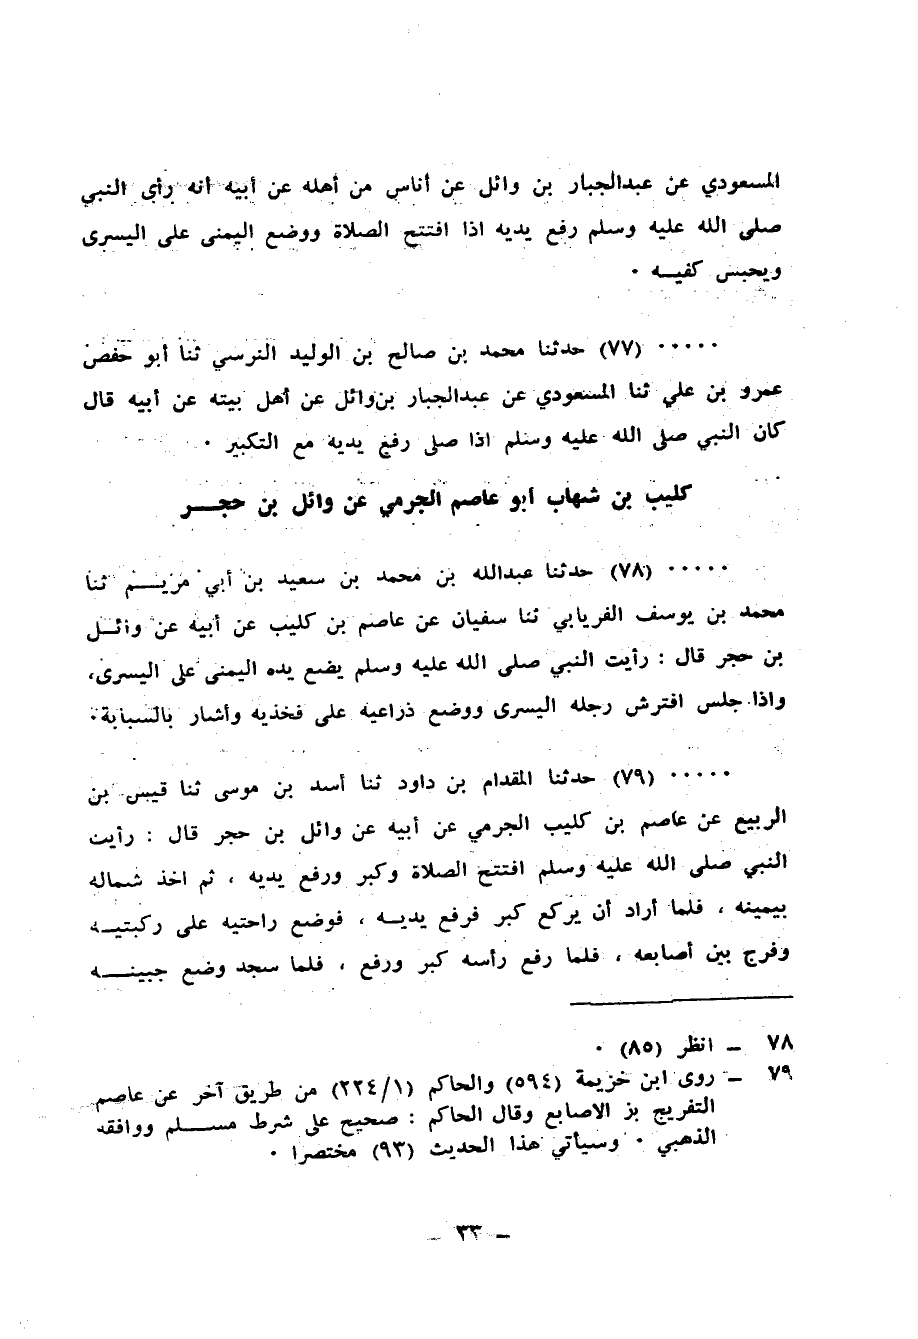 المسعودي عن عبدالجبار بن وائل عن أناس من أهله عن أبيه أنه رأى النبي
صلى الله عليه وسلم رفع يديه اذا افتتح الصلاة ووضع اليمنى على اليسرى
ويحبس كفيـه ٠
٠٠٠٠٠ (٧٧) حدثنا محمد بن صالح بن الوليد النرسي ثنا أبو حفص
عمرو بن علي ثنا المسعودي عن عبدالجبار بن وائل عن أهل بيته عن أبيه قال
كان النبي صلى الله عليه وسلم اذا صلى رفع يديه مع التكبير ٠
كليب بن شهاب أبو عاصم الجرمي عن وائل بن حجـر
٠٠٠٠٠ (٧٨) حدثنا عبدالله بن محمد بن سعيد بن أبي مريـم ثنا
محمد بن يوسف الفريابي ثنا سفيان عن عاصم بن كليب عن أبيه عن وائـل
بن حجر قال : رأيت النبي صلى الله عليه وسلم يضع يده اليمنى على اليسرى،
واذا جلس افترش رجله اليسرى ووضع ذراعيه على فخذيه وأشار بالسبابة٠
٠٠٠٠٠ (٧٩) حدثنا المقدام بن داود ثنا أسد بن موسى ثنا قيس بن
الربيع عن عاصم بن كليب الجرمي عن أبيه عن وائل بن حجر قال : رأيت
النبي صلى الله عليه وسلم افتتح الصلاة وكبر ورفع يديه ، ثم اخذ شماله
بيمينه ، فلما أراد أن يركع كبر فرفع يديـه ، فوضع راحتيه على ركبتيـه
وفرج بين أصابعه ، فلما رفع رأسه كبر ورفع ، فلما سجد وضع جبينـه
٧٨ ـ انظر (٨٥) ٠
٧٩ ـ روى ابن خزيمة (٥٩٤) والحاكم (٢٢٤/١) من طريق آخر عن عاصم
التفريج بز الاصابع وقال الحاكم : صحيح على شرط مسـلم ووافقه
الذهبي ٠ وسيأتي هذا الحديث (٩٣) مختصرا ٠
ـ ٣٣ ـ